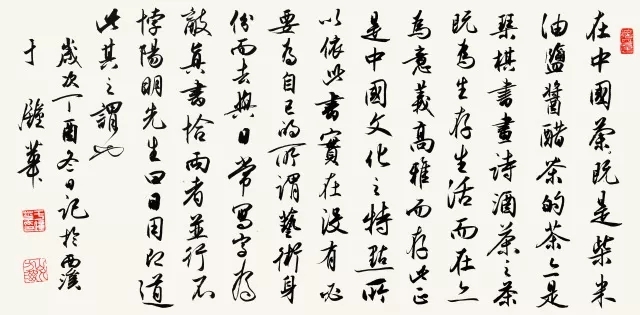 在中國茶既是柴米
油鹽醬醋茶的茶亦是
琴棋書畫詩酒茶之茶
既為生存生活而在亦
為意義高雅而存此正
是中國文化之特點所
以依此書實在沒有必
要為自己的所謂藝術身
份而去與日常寫字為
敵真書恰兩者並行不
悖陽明先生曰日用即道
此其之謂也
歲次丁酉冬日記於西溪
于鍾華